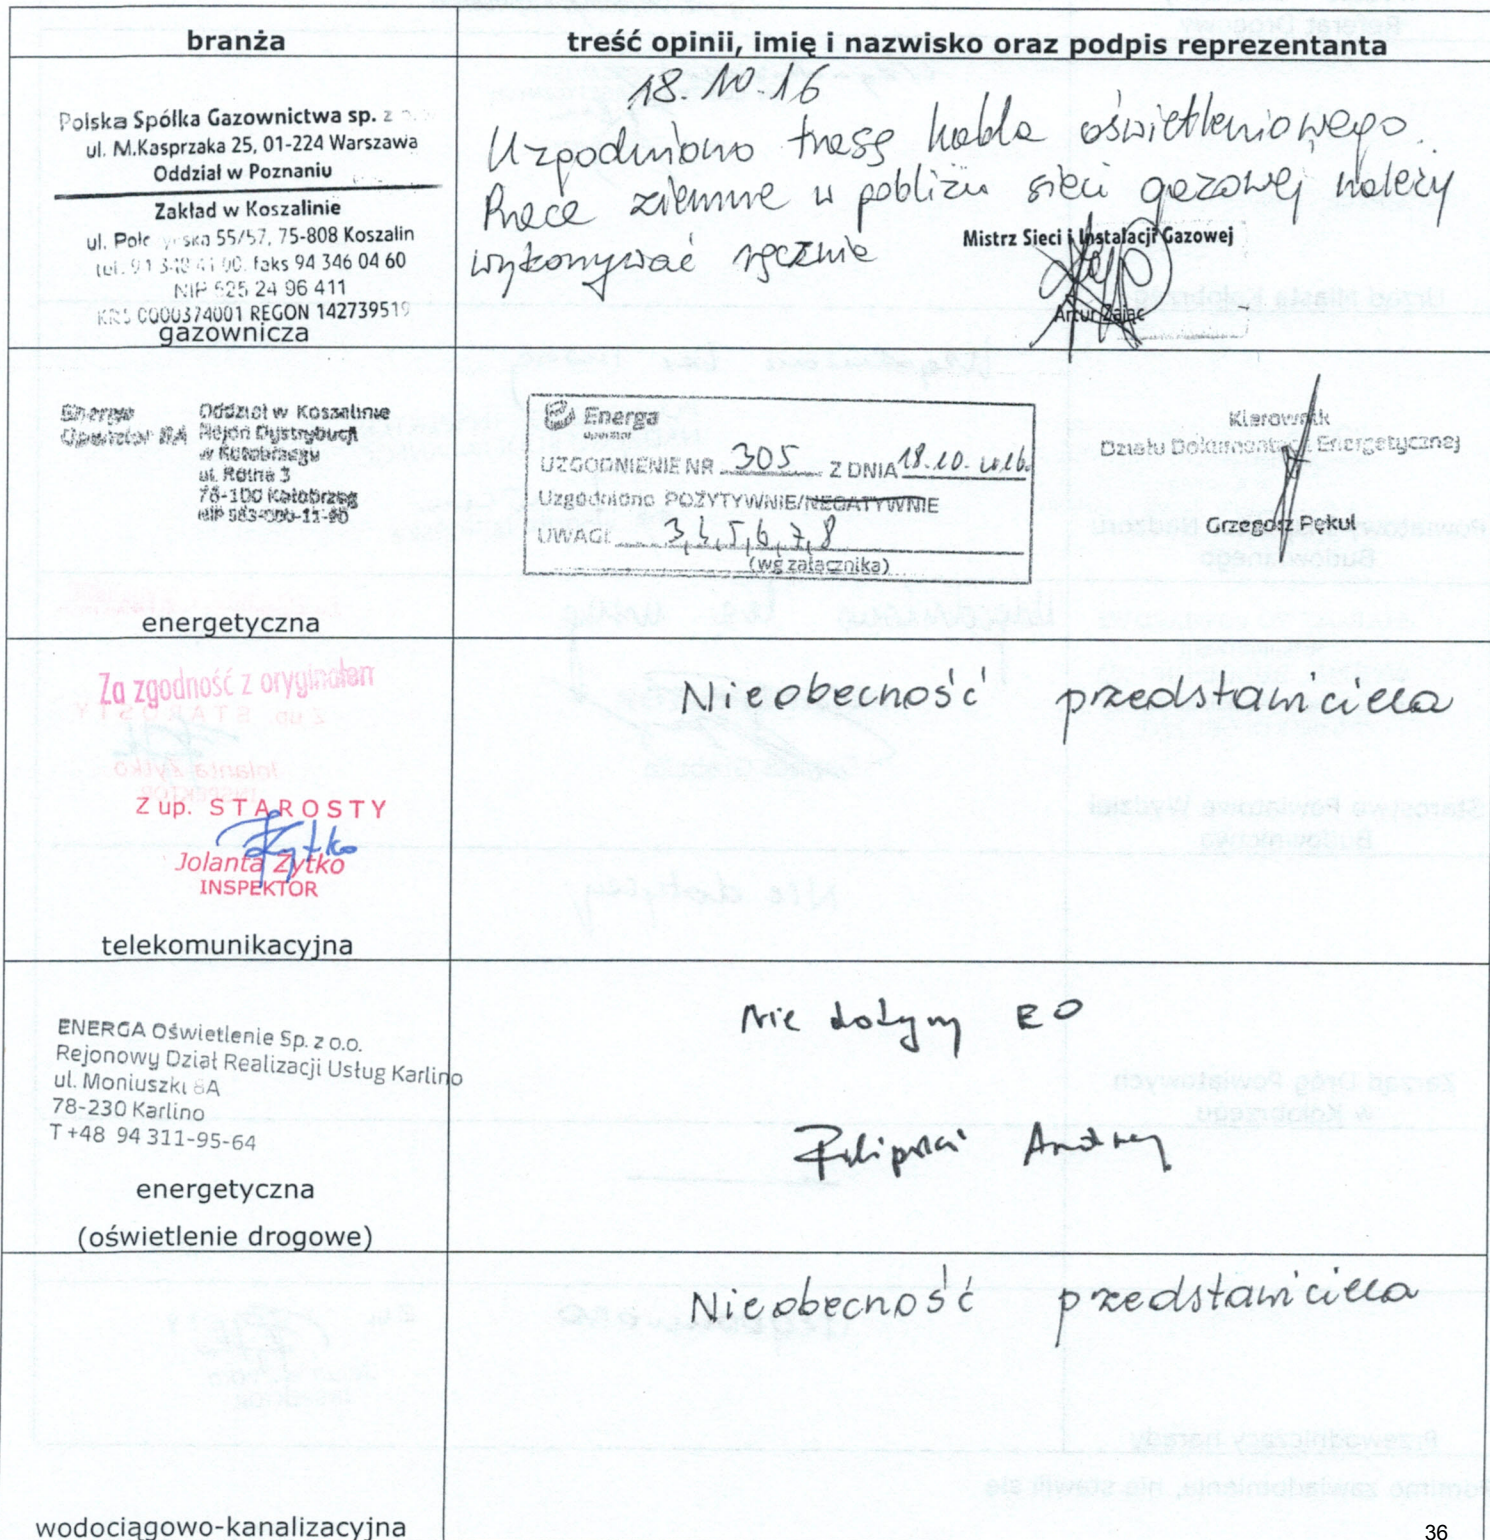 branża
treść opinii, imię i nazwisko oraz podpis reprezentanta
Polska Spółka Gazownictwa sp. z o.o.
ul. M.Kasprzaka 25, 01-224 Warszawa
Oddział w Poznaniu
Zakład w Koszalinie
55/57, 75-808 Koszalin
faks 94 346 04 60
NIP 525 24 96 411
KRS 0000374001 REGON 142739519
gazownicza
18.10.16
Uzgodniono trasę kabla oświetleniowego.
Prace ziemne w pobliżu sieci gazowej należy
wykonywać ręcznie
Mistrz Sieci i Instalacji Gazowej
Artur Zając
Energa
Operator SA
Oddział w Koszalinie
Rejon Dystrybucji
w Kołobrzegu
ul. Rolna 3
78-100 Kołobrzeg
NIP 583-000-11-90
energetyczna
Energa
operator
UZGODNIENIE NR 305 Z DNIA 18.10.2016.
Uzgodniono POZYTYWNIE/NEGATYWNIE
UWAGI: 3,4,5,6,7,8
(wg załącznika)
Kierownik
Działu Dokumentacji Energetycznej
Grzegorz Pękul
Za zgodność z oryginałem
Z up. STAROSTY
Jolanta Żytko
INSPEKTOR
telekomunikacyjna
Nieobecność przedstawiciela
ENERGA Oświetlenie Sp. z o.o.
Rejonowy Dział Realizacji Usług Karlino
ul. Moniuszki 8A
78-230 Karlino
T +48 94 311-95-64
energetyczna
(oświetlenie drogowe)
Nie dotyczy EO
Filipski Andrzej
Nieobecność przedstawiciela
wodociągowo-kanalizacyjna
36